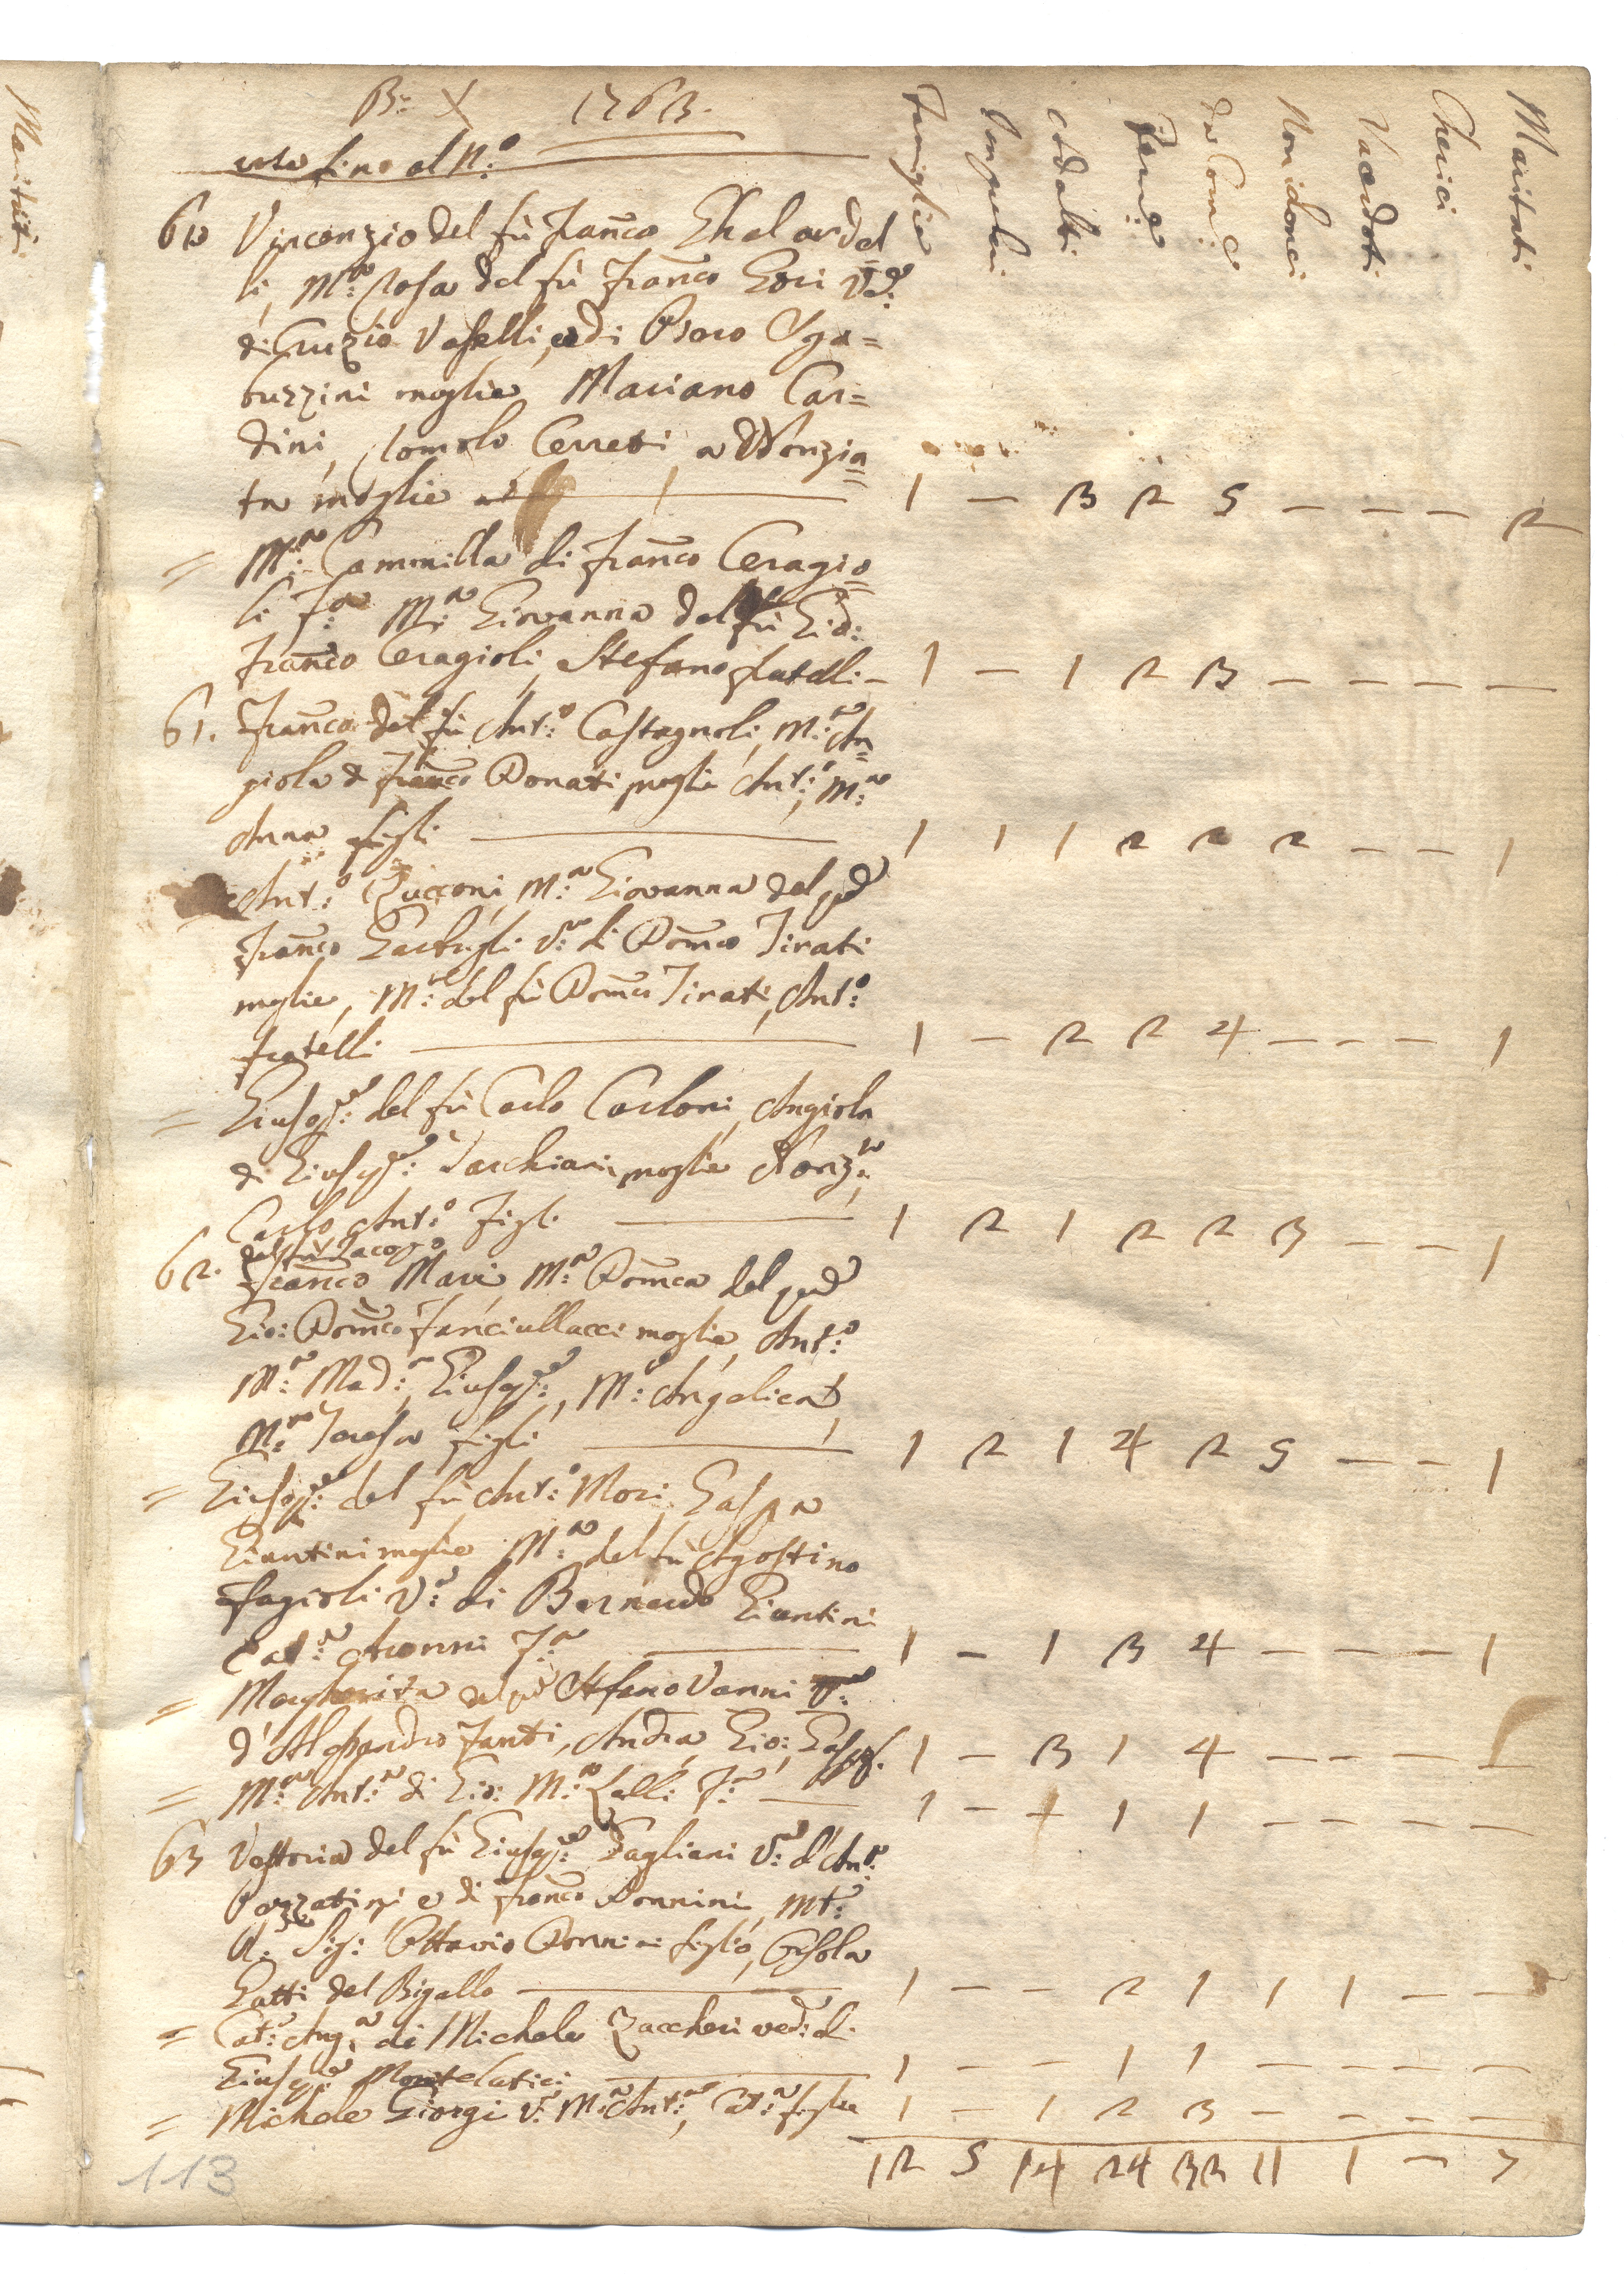 Maritati
B.a X 1763.
fino al N.o
Famiglie Impuberi Adulti Fem.e Da Com.e Non idonei Sacerdoti Cherici Maritati
60 Vincenzio del fù Fran.co Ghelardel
li, M.a Rosa del fù Fran.co Gori V.a
di Vaselli, e di Sga=
buzzini moglie Mariano Car=
dini, Romolo Cerreti e Nonzia=
ta moglie — 1 — 3 2 5 — — — 2
= M.a Cammilla di Fran.co Ceragio=
li F.a M.a Giovanna del fù Gio:
Fran.co Ceragioli, Stefano fratelli — 1 — 1 2 3 — — — —
61. Fran.co del fù Ant.o Castagnoli, M.a An=
giola di Fran.co Donati moglie Ant.o, M.a
Anna figli — 1 1 1 2 2 2 — — 1
Ant.o Zucconi, M.a Giovanna del
Fran.co V.a di Dom.co Tirati
moglie, M.a del fù Dom.co Tirati, Ant.o
fratelli — 1 — 2 2 4 — — — 1
= Giusep.e del fù Carlo Carloni, Angiola
di Giusep.e moglie Nonz.a,
Carlo, Ant.o Figli — 1 2 1 2 2 3 — — 1
del fù Jacopo
62. Fran.co Mari, M.a Dom.ca del
Gio: Dom.co Fanciullacci moglie, Ant.o
M.a Mad.a, Giusep.e, M.a Angelica,
M.a Teresa figli — 1 2 1 4 2 5 — — 1
= Giusep.e del fù Ant.o Mori,
Giuntini moglie M.a del fù Agostino
Fagioli V.a di Bernardo Giuntini
Cat.a F.a — 1 — 1 3 4 — — — 1
= Margherita Stefano Vanni V.a
d'Alessandro Fanti, Andrea, Gio:, 1 — 3 1 4 — — — 1
= M.a Ant.a di Gio: M.a Lalli F.a — 1 — + 1 1 — — — —
63 Vettoria del fù Giusep.e Gagliani V.a d'Ant.o
e di Fran.co Donnini,
Sig: Ottavio Donnini figlio, Orsola
Gatti del Bigallo — 1 — — 2 1 1 1 — —
= Cat.a Ang.a di Michele Zaccheri ved.a di
Giusep.e Montelatici — 1 — — 1 1 — — — —
= Michele Giorgi V.o M.a Ant.a, Cat.a figlie 1 — 1 2 3 — — — —
12 5 14 24 32 11 1 — 7
113